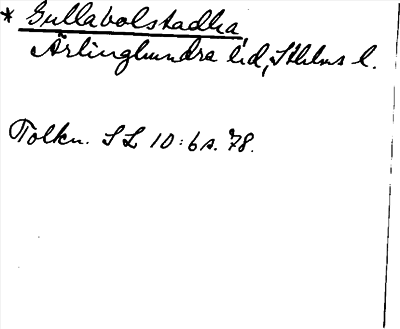 * Gullabolstadha,
Ärlinghundra hd, Sthlms l.
Tolkn. SL 10:6 s. 78.